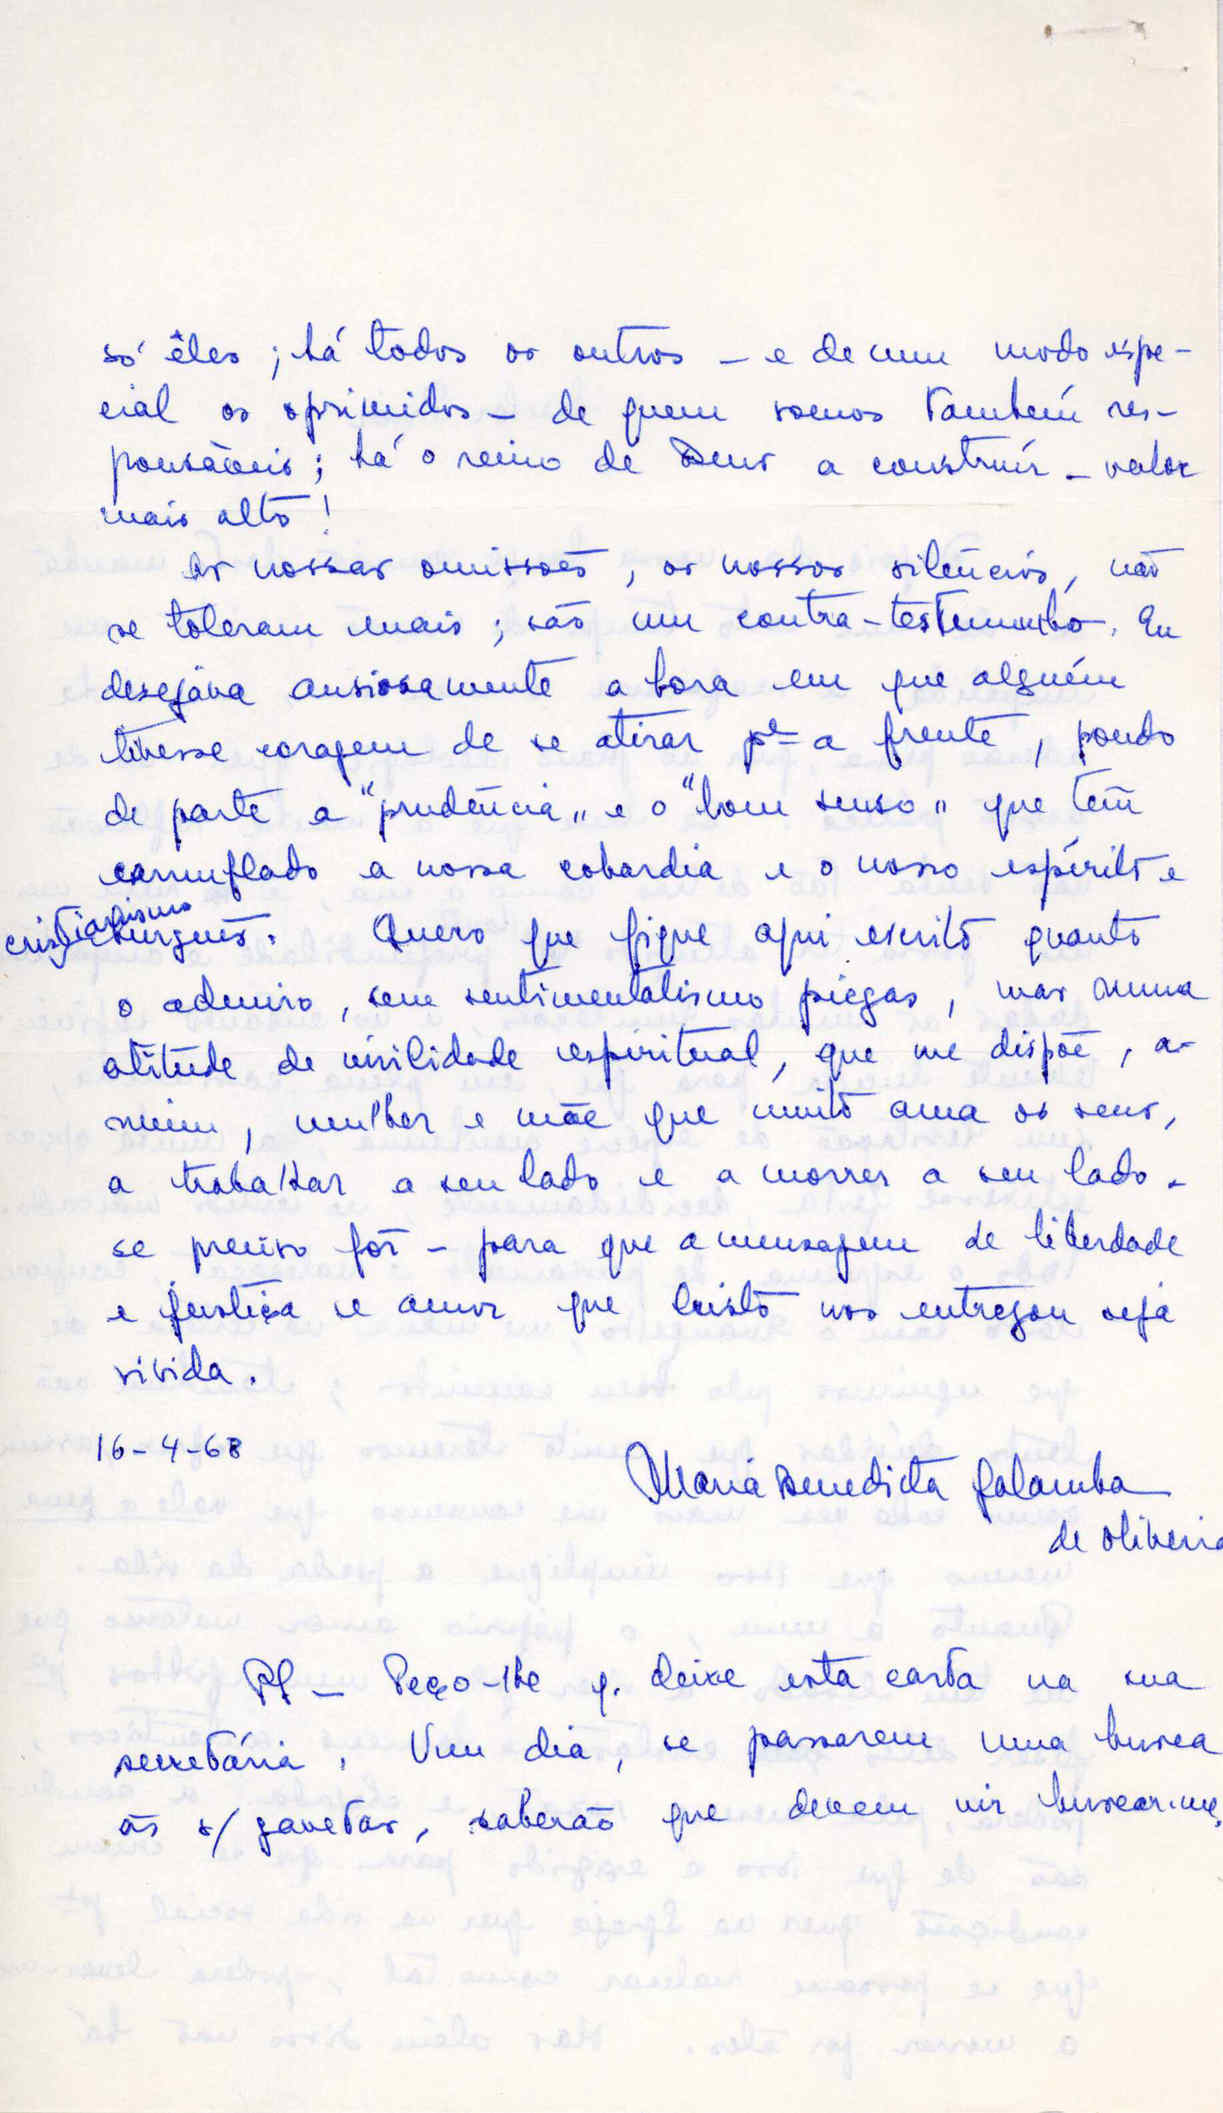 só êles; há todos os outros - e de um modo espe-
cial os oprimidos - de quem somos também res-
ponsáveis; há o reino de Deus a construír - valor
mais alto!
As nossas omissões, os nossos silêncios, não
se toleram mais; são um contra-testemunho. Eu
desejava ansiosamente a hora em que alguém
tivesse coragem de se atirar pª a frente, pondo
de parte a "prudência" e o "bom senso" que têm
camuflado a nossa cobardia e o nosso espírito e
cristianismo burguês. Quero que fique aqui escrito quanto
o admiro, sem sentimentalismo piegas, mas numa
atitude de virilidade espiritual, que me dispõe, a-
mim, mulher e mãe que muito ama os seus,
a trabalhar a seu lado e a morrer a seu lado -
se preciso fôr - para que a mensagem de liberdade
e justiça e amor que Cristo nos entregou seja
vivida.
16-4-68
Maria Benedicta Galamba
de Oliveira
PS - Peço-lhe q. deixe esta carta na sua
secretária. Um dia, se passarem uma busca
às s/ gavetas, saberão que devem vir buscar-me.